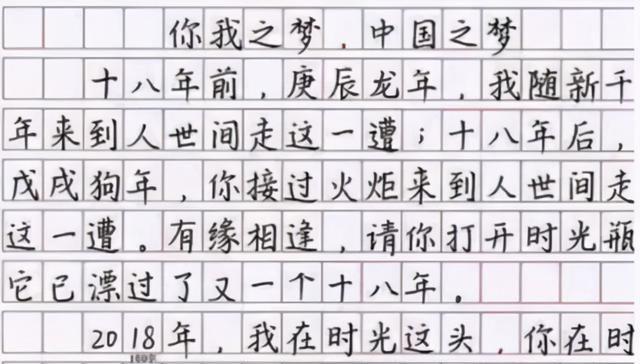 你我之梦，中国之梦
十八年前，庚辰龙年，我随新千
年来到人世间走这一遭；十八年后，
戊戌狗年，你接过火炬来到人世间走
这一遭。有缘相逢，请你打开时光瓶
它已漂过了又一个十八年。
2018年，我在时光这头，你在时